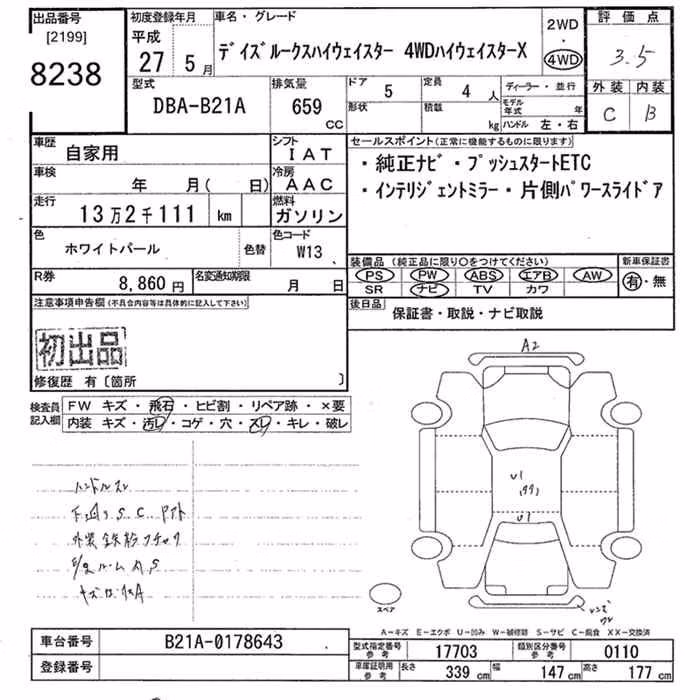 出品番号 [2199] 8238
初度登録年月 平成 27 5月
車名・グレード
デイズルークスハイウェイスター 4WDハイウェイスターX
2WD・4WD
評価点 3.5
外装 内装
C B
型式 DBA-B21A
排気量 659 CC
ドア 5
形状
定員 4 人
積載 kg
ディーラー・並行
モデル年式 年
ハンドル 左・右
車歴 自家用
シフト IAT
車検 年 月( 日)
冷房 AAC
走行 13万2千111 km
燃料 ガソリン
色 ホワイトパール 色替
色コード W13
R券 8,860円
名変通知期限 月 日
セールスポイント(正常に機能するものに限ります)
・純正ナビ・プッシュスタートETC
・インテリジェントミラー・片側パワースライドア
装備品(純正品に限り〇をつけてください)
PS PW ABS エアB AW
SR ナビ TV カワ
新車保証書 有・無
後日品 保証書・取説・ナビ取説
注意事項申告欄(不具合内容等は具体的に記入して下さい)
初出品
修復歴 有〔箇所 〕
検査員記入欄
FW キズ・飛石・ヒビ割・リペア跡・×要
内装 キズ・汚レ・コゲ・穴・スレ・キレ・破レ
ハンドルスレ
A2
U1
U1
スペア
A-キズ E-エクボ U-凹み W-補修跡 S-サビ C-腐食 XX-交換済
車台番号 B21A-0178643
登録番号
型式指定番号 参考 17703
類別区分番号 参考 0110
車庫証明用 参考 長さ 339 cm 幅 147 cm 高さ 177 cm